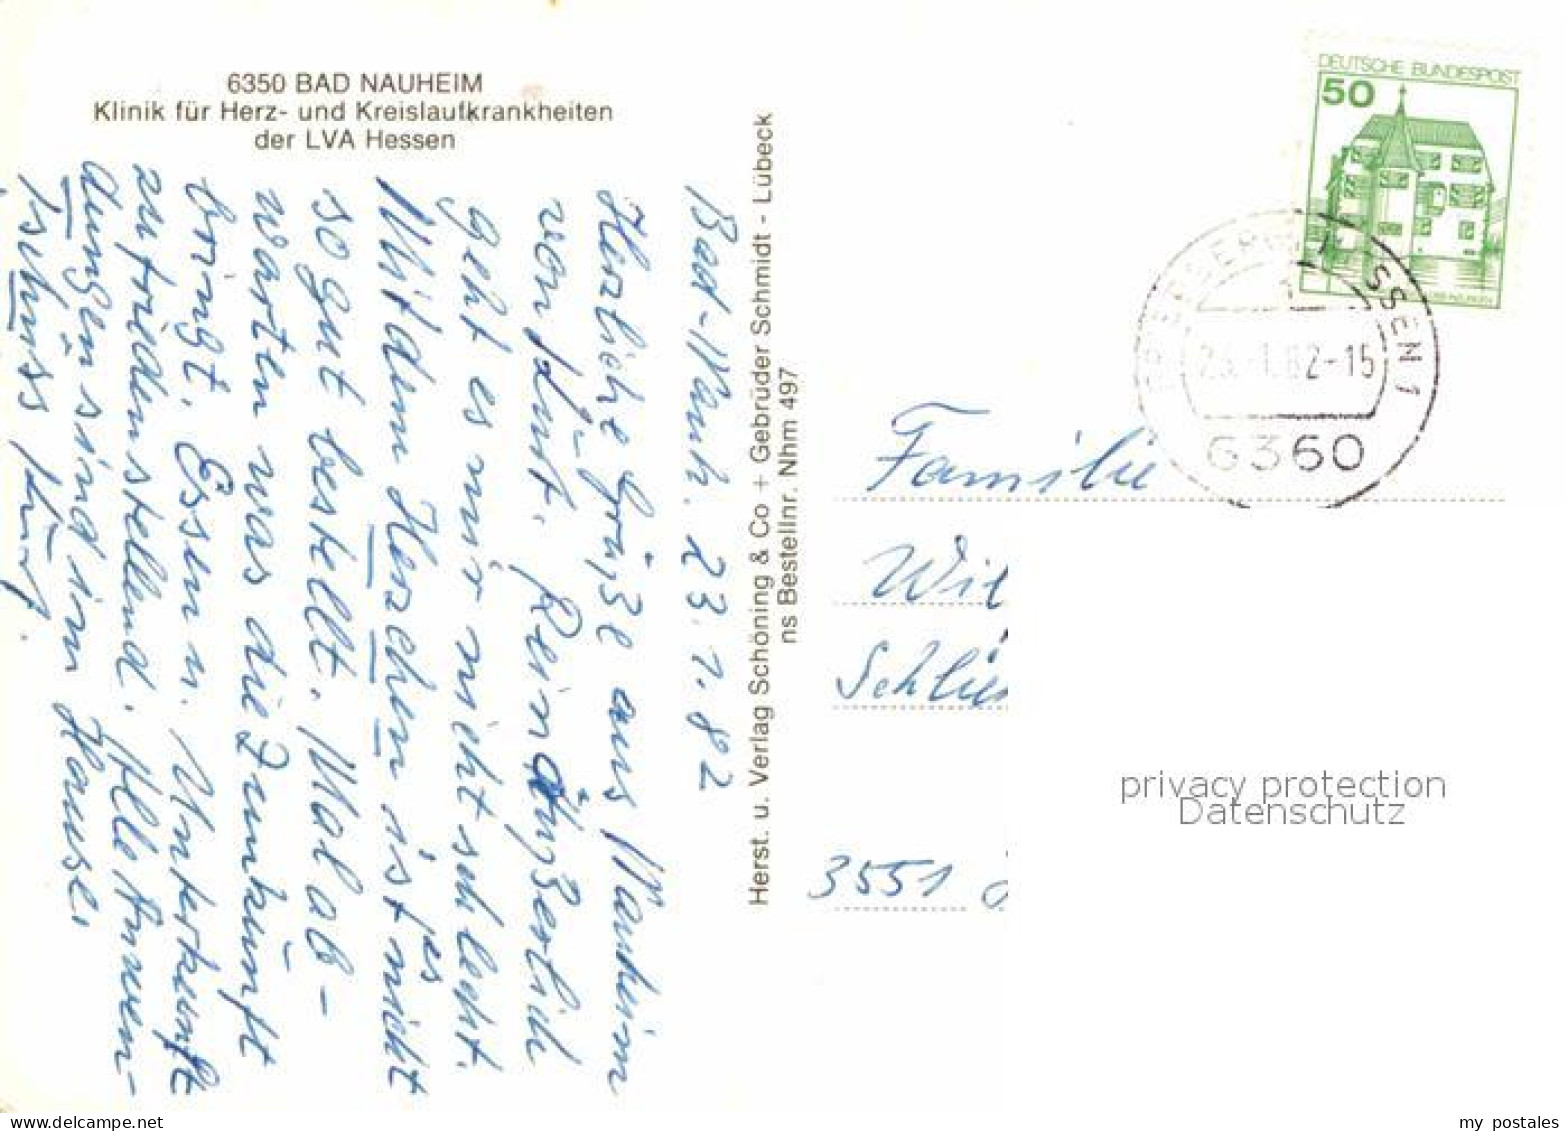 6350 BAD NAUHEIM
Klinik für Herz- und Kreislaufkrankheiten
der LVA Hessen
Bad-Nauh. 23.1.82
Herzliche Grüße aus Nauheim
von Kurt. Rein Äußerlich
geht es mir nicht schlecht.
Mit dem Herzchen ist es nicht
so gut bestellt. Mal ab-
warten was die Zunkunft
bringt. Essen u. Unterkunft
zufriedenstellend. Alle Anwen-
dungen sind im Hause.
Tschüss Kurt.
Herst. u. Verlag Schöning & Co + Gebrüder Schmidt - Lübeck
ns Bestellnr. Nhm 497
DEUTSCHE BUNDESPOST
50
SSEN 1
1.82-15
6360
Familie
Wil
Schlie
3551
privacy protection
Datenschutz
my postales